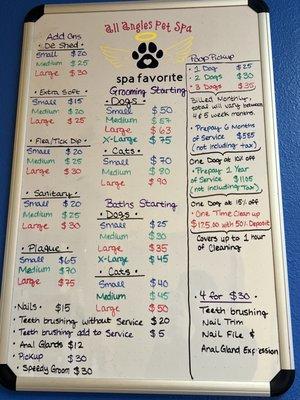 All Angles Pet Spa
spa favorite
Add Ons
• De Shed •
Small $20
Medium $25
Large $30
• Extra Soft •
Small $15
Medium $20
Large $25
• Flea/Tick Dip •
Small $20
Medium $25
Large $30
• Sanitary •
Small $20
Medium $25
Large $30
• Plaque •
Small $65
Medium $70
Large $75
• Nails • $15
• Teeth brushing without Service $20
• Teeth brushing add to Service $5
• Anal Glands $12
• Pickup $30
• Speedy Groom $30
Grooming Starting
• Dogs •
Small $50
Medium $57
Large $63
X-Large $75
• Cats •
Small $70
Medium $80
Large $90
Baths Starting
• Dogs •
Small $25
Medium $30
Large $35
X-Large $45
• Cats •
Small $40
Medium $45
Large $50
Poop Pickup
• 1 Dog $25
• 2 Dogs $30
• 3 Dogs $35
Billed Monthly
total will vary between
4 & 5 week months.
• Prepay 6 Months
of Service $585
(not including tax)
One Dog at 10% off
• Prepay 1 Year
of Service $1105
(not including Tax)
One Dog at 15% off
• One Time Clean up
$175.00 with 50% Deposit
Covers up to 1 hour
of Cleaning
• 4 for $30 •
Teeth brushing
Nail Trim
Nail File &
Anal Gland Expression